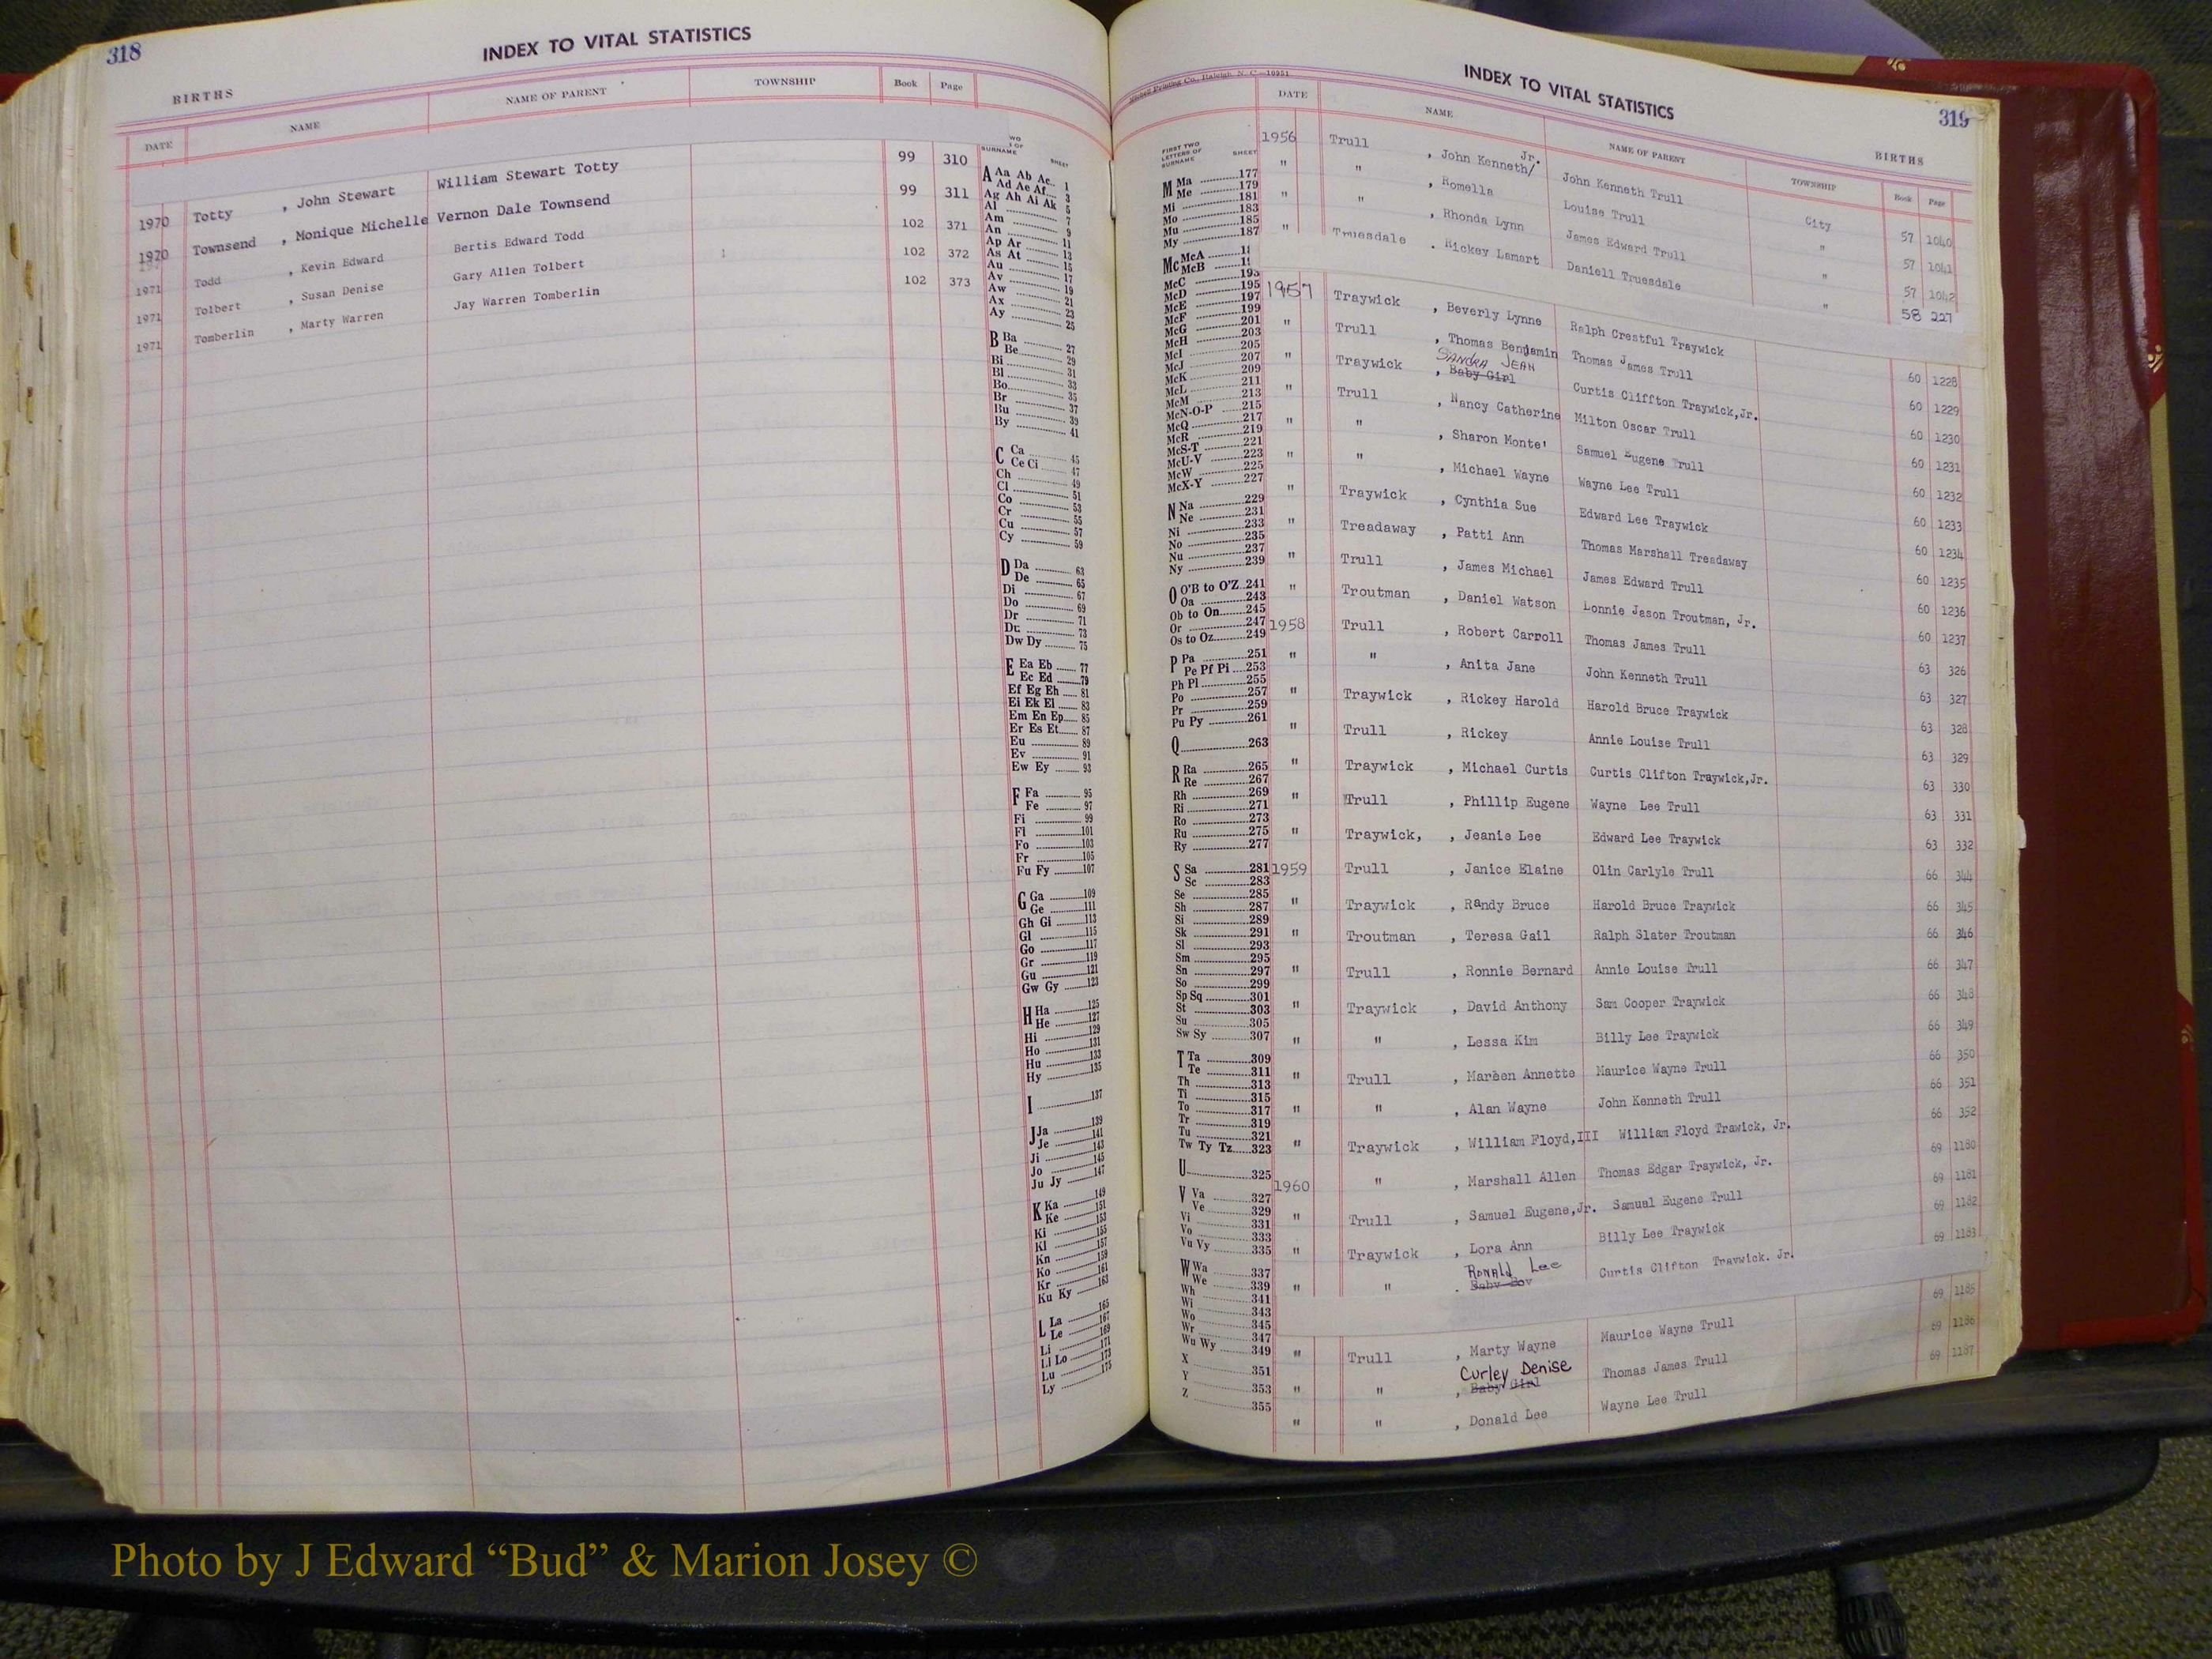 318
INDEX TO VITAL STATISTICS
BIRTHS
DATE NAME NAME OF PARENT TOWNSHIP Book Page
1970 Totty , John Stewart William Stewart Totty 99 310
1970 Townsend , Monique Michelle Vernon Dale Townsend 99 311
1971 Todd , Kevin Edward Bertis Edward Todd 102 371
1971 Tolbert , Susan Denise Gary Allen Tolbert 102 372
1971 Tomberlin , Marty Warren Jay Warren Tomberlin 102 373
WO
OF
SURNAME SHEET
A Aa Ab Ac.. 1
Ad Ae Af... 3
Ag Ah Ai Ak 5
Al 7
Am 9
An 11
Ap Ar 13
As At 15
Au 17
Av 19
Aw 21
Ax 23
Ay 25
B Ba 27
Be 29
Bi 31
Bl 33
Bo 35
Br 37
Bu 39
By 41
C Ca 45
Ce Ci 47
Ch 49
Cl 51
Co 53
Cr 55
Cu 57
Cy 59
D Da 63
De 65
Di 67
Do 69
Dr 71
Du 73
Dw Dy 75
E Ea Eb 77
Ec Ed 79
Ef Eg Eh 81
Ei Ek El 83
Em En Ep 85
Er Es Et 87
Eu 89
Ev 91
Ew Ey 93
F Fa 95
Fe 97
Fi 99
Fl 101
Fo 103
Fr 105
Fu Fy 107
G Ga 109
Ge 111
Gh Gi 113
Gl 115
Go 117
Gr 119
Gu 121
Gw Gy 123
H Ha 125
He 127
Hi 129
Ho 131
Hu 133
Hy 135
I 137
J Ja 139
Je 141
Ji 143
Jo 145
Ju Jy 147
K Ka 149
Ke 151
Ki 153
Kl 155
Kn 157
Ko 159
Kr 161
Ku Ky 163
L La 165
Le 167
Li 169
Ll Lo 171
Lu 173
Ly 175
Printing Co., Raleigh, N. C.—10951
INDEX TO VITAL STATISTICS
319
BIRTHS
DATE NAME NAME OF PARENT TOWNSHIP Book Page
FIRST TWO
LETTERS OF
SURNAME SHEET
M Ma 177
Me 179
Mi 181
Mo 183
Mu 185
My 187
Mc McA
McB
McC 193
McD 195
McE 197
McF 199
McG 201
McH 203
McI 205
McJ 207
McK 209
McL 211
McM 213
McN-O-P 215
McQ 217
McR 219
McS-T 221
McU-V 223
McW 225
McX-Y 227
N Na 229
Ne 231
Ni 233
No 235
Nu 237
Ny 239
O O'B to O'Z 241
Oa 243
Ob to On 245
Or 247
Os to Oz 249
P Pa 251
Pe Pf Pi 253
Ph Pl 255
Po 257
Pr 259
Pu Py 261
Q 263
R Ra 265
Re 267
Rh 269
Ri 271
Ro 273
Ru 275
Ry 277
S Sa 281
Sc 283
Se 285
Sh 287
Si 289
Sk 291
Sl 293
Sm 295
Sn 297
So 299
Sp Sq 301
St 303
Su 305
Sw Sy 307
T Ta 309
Te 311
Th 313
Ti 315
To 317
Tr 319
Tu 321
Tw Ty Tz 323
U 325
V Va 327
Ve 329
Vi 331
Vo 333
Vu Vy 335
W Wa 337
We 339
Wh 341
Wi 343
Wo 345
Wr 347
Wu Wy 349
X 351
Y 353
Z 355
1956 Trull , John Kenneth/ Jr. John Kenneth Trull City 57 1040
" " , Romella Louise Trull " 57 1041
" " , Rhonda Lynn James Edward Trull " 57 1042
" Truesdale . Rickey Lamart Daniell Truesdale 58 227
1957 Traywick , Beverly Lynne Ralph Crestful Traywick 60 1228
" Trull , Thomas Benjamin Thomas James Trull 60 1229
" Traywick , SANDRA JEAN Baby Girl Curtis Cliffton Traywick,Jr. 60 1230
" Trull , Nancy Catherine Milton Oscar Trull 60 1231
" " , Sharon Monte' Samuel Eugene Trull 60 1232
" " , Michael Wayne Wayne Lee Trull 60 1233
" Traywick , Cynthia Sue Edward Lee Traywick 60 1234
" Treadaway , Patti Ann Thomas Marshall Treadaway 60 1235
" Trull , James Michael James Edward Trull 60 1236
" Troutman , Daniel Watson Lonnie Jason Troutman, Jr. 60 1237
1958 Trull , Robert Carroll Thomas James Trull 63 326
" " , Anita Jane John Kenneth Trull 63 327
" Traywick , Rickey Harold Harold Bruce Traywick 63 328
" Trull , Rickey Annie Louise Trull 63 329
" Traywick , Michael Curtis Curtis Clifton Traywick,Jr. 63 330
" Trull , Phillip Eugene Wayne Lee Trull 63 331
" Traywick, , Jeanie Lee Edward Lee Traywick 63 332
1959 Trull , Janice Elaine Olin Carlyle Trull 66 344
" Traywick , Randy Bruce Harold Bruce Traywick 66 345
" Troutman , Teresa Gail Ralph Slater Troutman 66 346
" Trull , Ronnie Bernard Annie Louise Trull 66 347
" Traywick , David Anthony Sam Cooper Traywick 66 348
" " , Lessa Kim Billy Lee Traywick 66 349
" Trull , Mareen Annette Maurice Wayne Trull 66 350
" " , Alan Wayne John Kenneth Trull 66 351
" Traywick , William Floyd,III William Floyd Trawick, Jr. 66 352
1960 " , Marshall Allen Thomas Edgar Traywick, Jr. 69 1180
" Trull , Samuel Eugene,Jr. Samual Eugene Trull 69 1181
" Traywick , Lora Ann Billy Lee Traywick 69 1182
" " . RONALD Lee Baby Boy Curtis Clifton Traywick. Jr. 69 1183
" Trull , Marty Wayne Maurice Wayne Trull 69 1185
" " , Curley Denise Baby Girl Thomas James Trull 69 1186
" " , Donald Lee Wayne Lee Trull 69 1187
Photo by J Edward “Bud” & Marion Josey ©